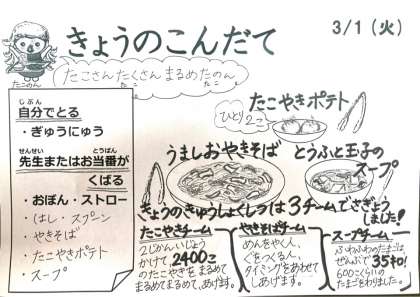 きょうのこんだて
3/1（火）
たこさんたくさんまるめたのん
たこ　たこ
たこのん
じぶん
自分でとる
・ぎゅうにゅう
せんせい　とうばん
先生またはお当番が
くばる
・おぼん・ストロー
・はし・スプーン
・やきそば
・たこやきポテト
・スープ
たこやきポテト
ひとり2こ
うましおやきそば
とうふと玉子の
スープ
きょうのきゅうしょくしつは3チームでさぎょう
しました！
たこやきチーム
2じかんいじょう
かけて2400こ
のたこやきをまるめて
まるめてまるめて、あげます。
やきそばチーム
めんをやく人、
ぐをつくる人、
タイミングをあわせて
しあげます。
スープチーム
ふわふわのたまごは、
ぜんぶで35キロ！
600こくらいの
たまごをわりました。